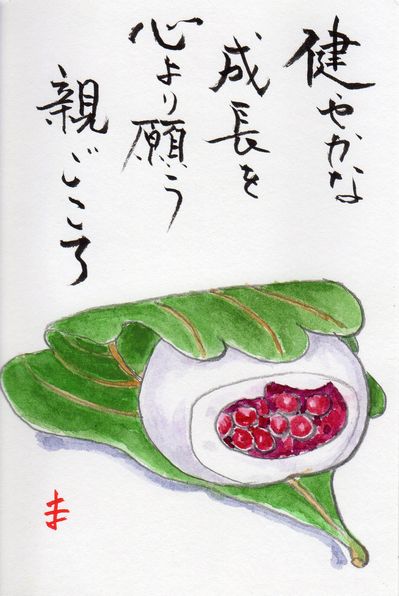 健やかな
成長を
心より願う
親ごころ
ま